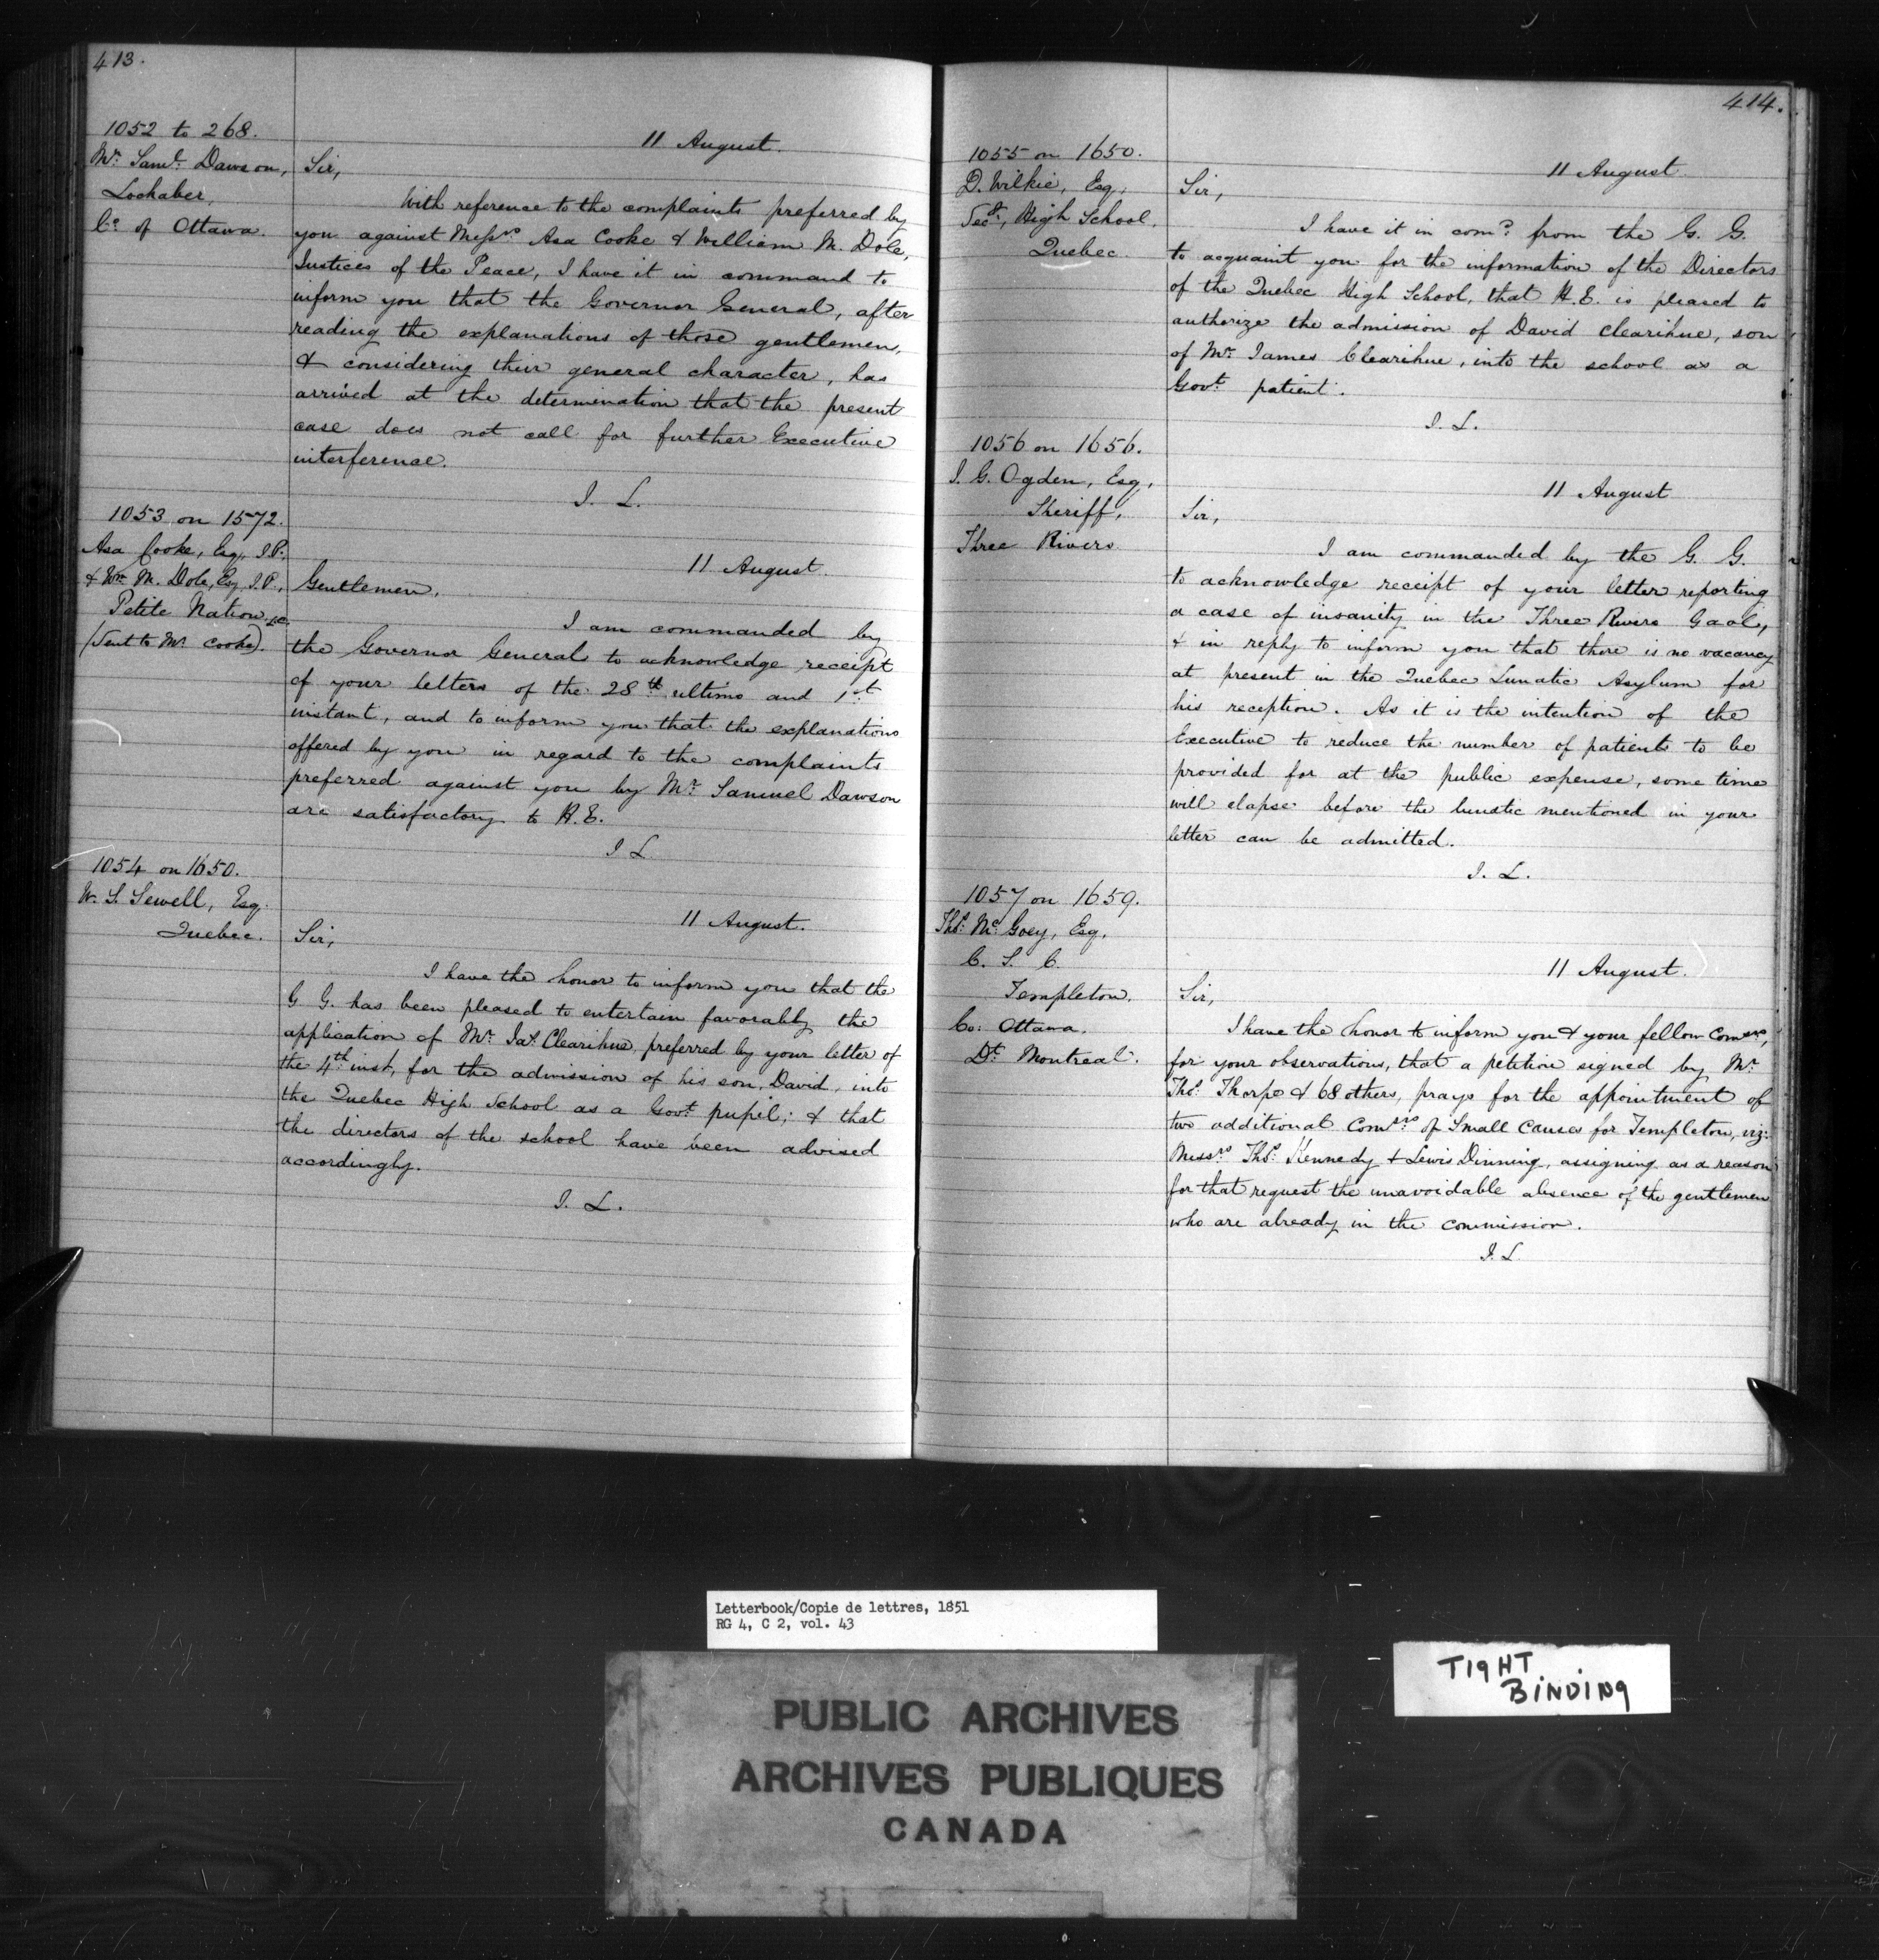 413.
1052 to 268.
Mr. Saml. Dawson,
Lochaber,
Co. of Ottawa.
11 August.
Sir,
With reference to the complaints preferred by
you against Messrs. Asa Cooke & William M. Dole,
Justices of the Peace, I have it in command to
inform you that the Governor General, after
reading the explanations of those gentlemen,
& considering their general character, has
arrived at the determination that the present
case does not call for further Executive
interference.
J. L.
1053 on 1572.
Asa Cooke, Esq., J.P.
& Wm. M. Dole, Esq. J.P.,
Petite Nation, L.C.
(Sent to Mr. Cooke).
11 August.
Gentlemen,
I am commanded by
the Governor General to acknowledge receipt
of your letters of the 28th ultimo and 1st
instant, and to inform you that the explanations
offered by you in regard to the complaints
preferred against you by Mr. Samuel Dawson
are satisfactory to H.E.
J. L.
1054 on 1650.
W. S. Sewell, Esq.
Quebec.
11 August.
Sir,
I have the honor to inform you that the
G. G. has been pleased to entertain favorably the
application of Mr. Jas. Clearihue, preferred by your letter of
the 4th inst, for the admission of his son, David, into
the Quebec High School as a Govt. pupil; & that
the directors of the school have been advised
accordingly.
J. L.
414.
1055 on 1650.
D. Wilkie, Esq,
Secy., High School,
Quebec.
11 August.
Sir,
I have it in comd. from the G. G.
to acquaint you for the information of the Directors
of the Quebec High School, that H.E. is pleased to
authorize the admission of David Clearihue, son
of Mr. James Clearihue, into the school as a
Govt. patient.
J. L.
1056 on 1656.
I. G. Ogden, Esq,
Sheriff,
Three Rivers
11 August
Sir,
I am commanded by the G. G.
to acknowledge receipt of your letter reporting
a case of insanity in the Three Rivers Gaol,
& in reply to inform you that there is no vacancy
at present in the Quebec Lunatic Asylum for
his reception. As it is the intention of the
Executive to reduce the number of patients to be
provided for at the public expense, some time
will elapse before the lunatic mentioned in your
letter can be admitted.
J. L.
1057 on 1659.
Thos. McGoey, Esq,
C. S. C.
Templeton,
Co: Ottawa.
Dt. Montreal.
11 August.
Sir,
I have the honor to inform you & your fellow Comsrs,
for your observations, that a petition signed by Mr.
Thos. Thorpe & 68 others, prays for the appointment of
two additional Comsrs. of Small Causes for Templeton, viz:
Messrs. Thos. Kennedy & Lewis Dinning, assigning as a reason
for that request the unavoidable absence of the gentlemen
who are already in the commission.
J. L.
Letterbook/Copie de lettres, 1851
RG 4, C 2, vol. 43
TIGHT
BINDING
PUBLIC ARCHIVES
ARCHIVES PUBLIQUES
CANADA